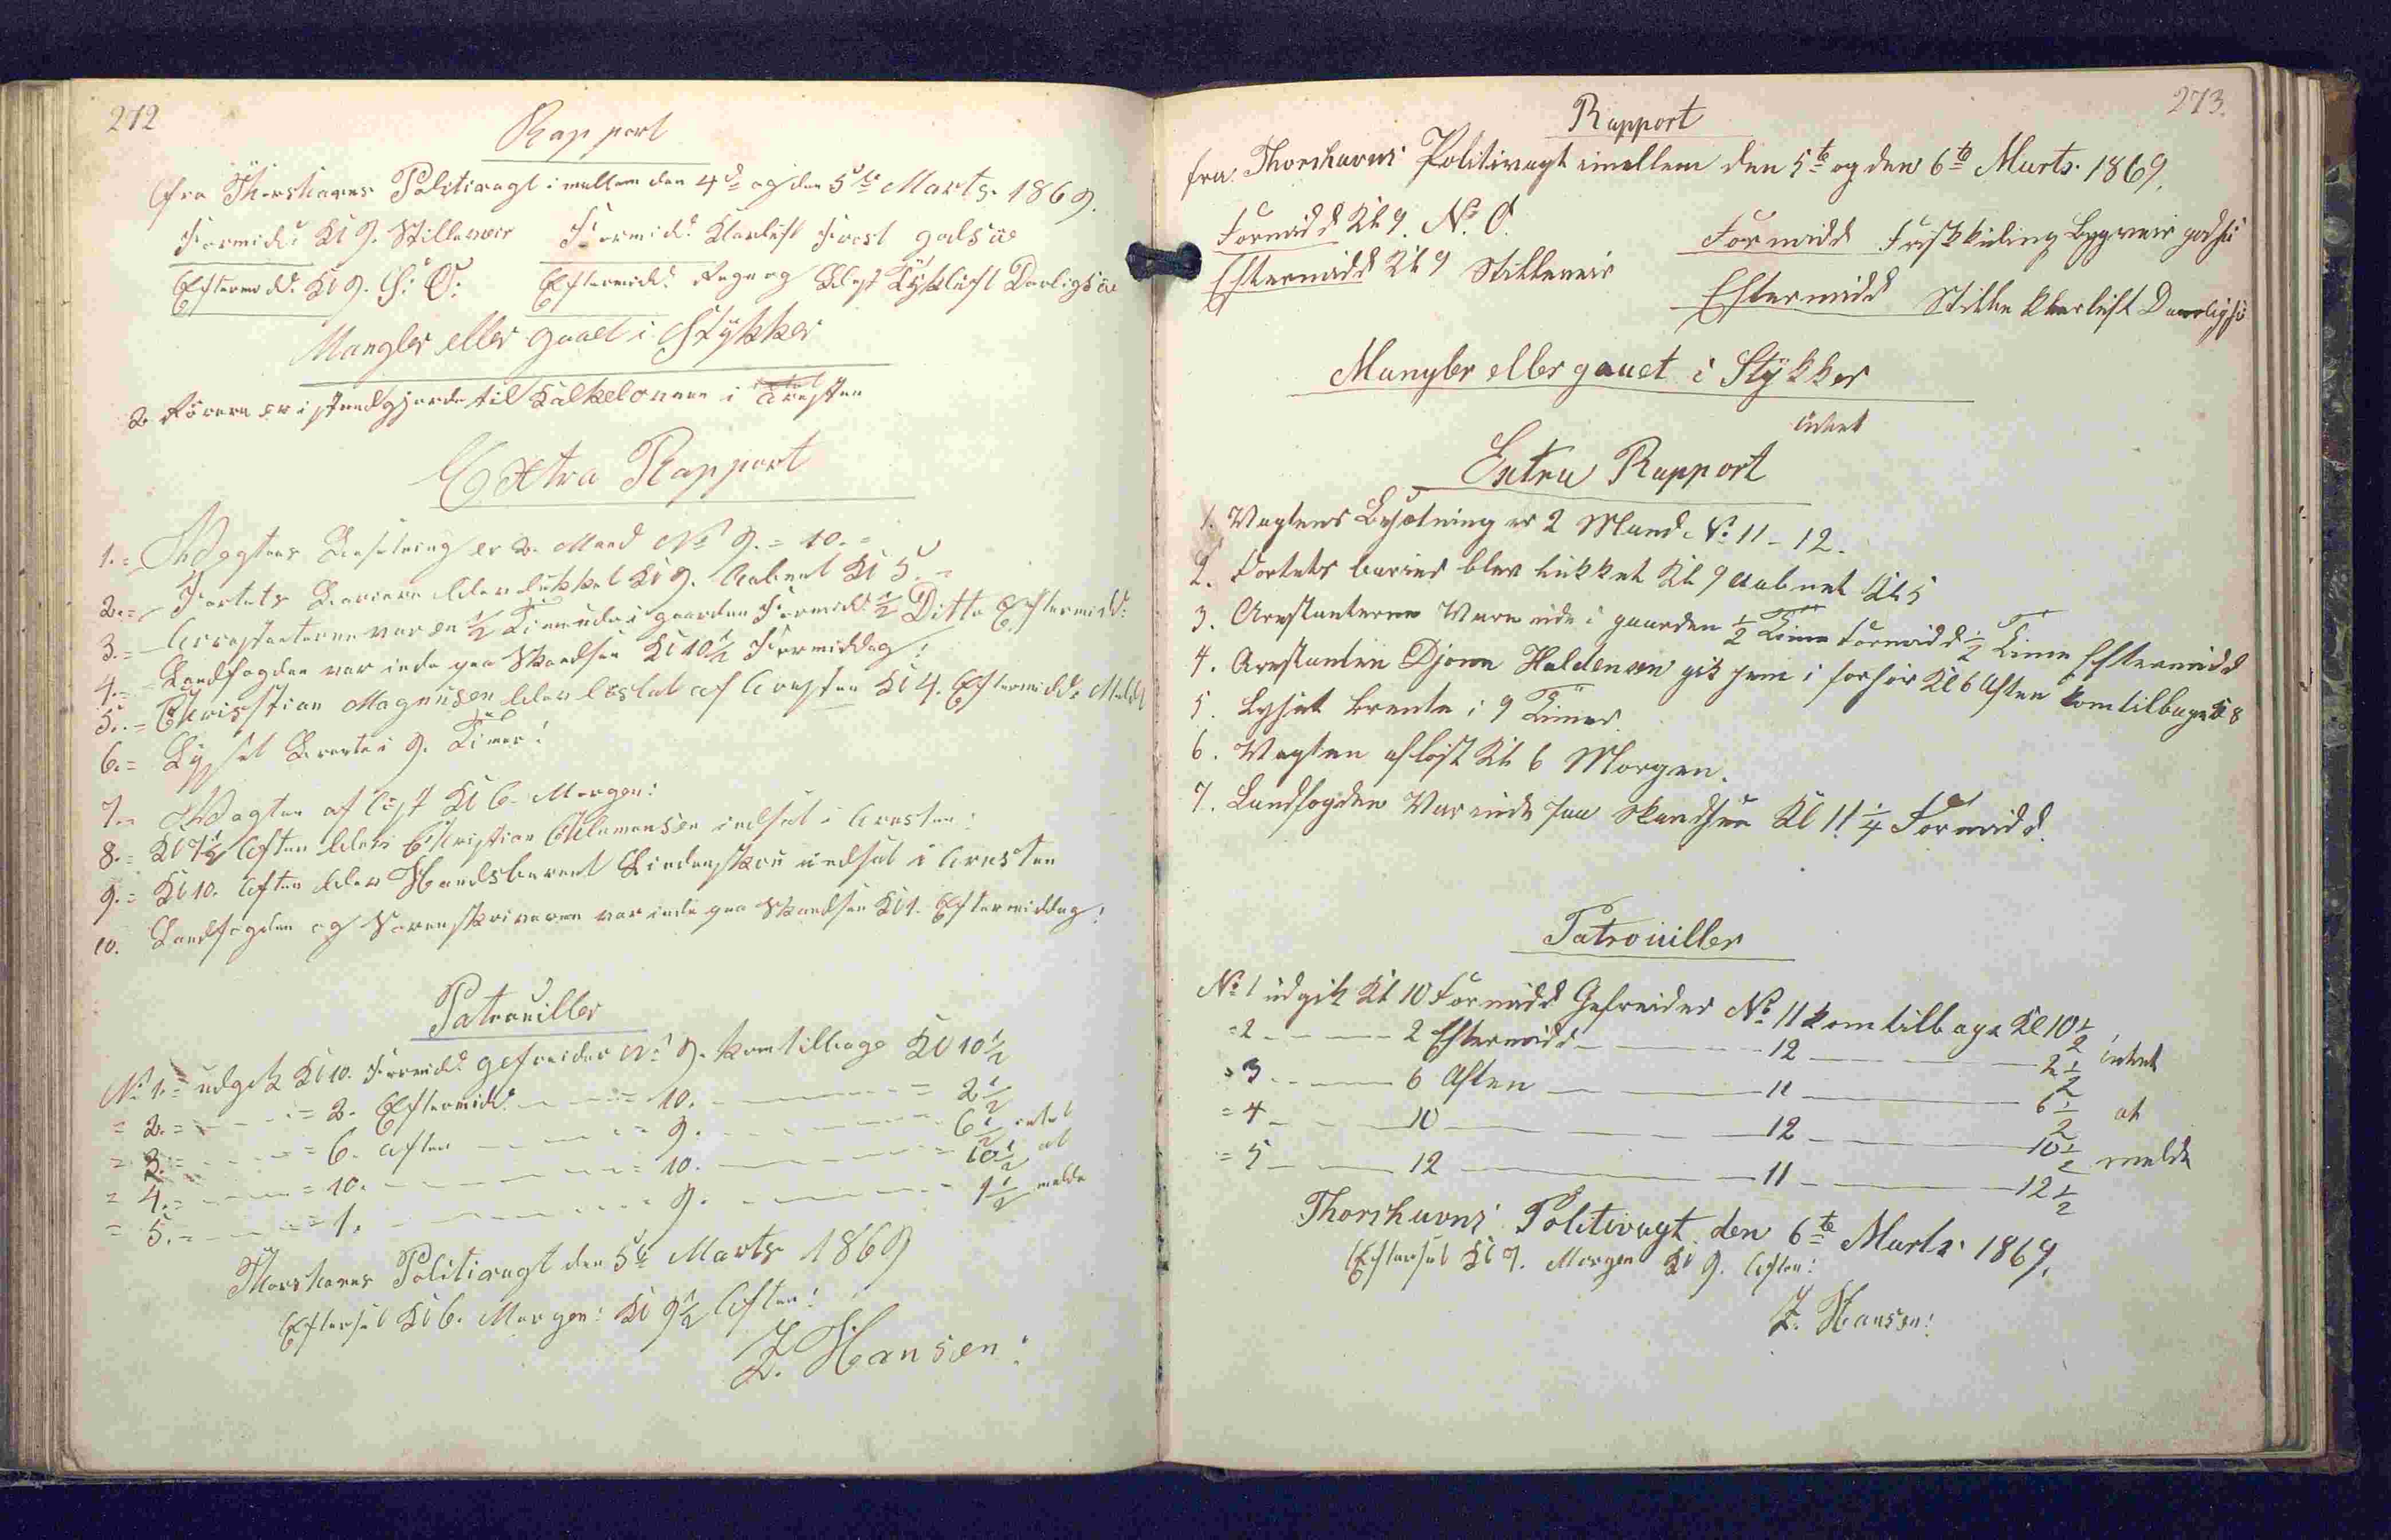 272
Rapport
fra Thorshavns Politivagt imellem den 4de og den 5te Marts 1869.
Formidd. Kl 9. Stilleveir Formidd. Klarluft Frost godt sü
Eftermidd. Kl 9. S: O: Eftermidd. Regn og Blæst Tÿkluft Daarligt sü
Mangler eller gaaet i Stÿkker
2 Rörene er istandgjorde til Kakkelovnene i Aresten
Extra Rapport
1. = Vagtens Besetning er 2. Mand No 9. = 10. =
2. = Fortets Bariere blev lükket Kl 9. Aabnet Kl 5. =
3. = Arrestanterne var en 1/2 Time ude i gaarden Formidd. 1/2 Ditto Eftermidd:
4. = Landfogden var inde paa Skandsen Kl 10 1/2 Formiddag!
5. = Christian Magnüsen blev löslat af Aresten Kl 4. Eftermidd.
6. = Lÿset Brente i 9. Timer!
7. = Vagten aflöst Kl 6. Morgen!
8. = Kl 7 1/2 Aften blev Christian Clemensen indsat i Aresten!
9. = Kl 10. Aften blev Handsberent Lindenskou indsat i Aresten
10. Landfogden og Sorenskriveren var inde paa Skandsen Kl 1. Eftermiddag!
Patrouiller
No 1. = udgik Kl 10. Formidd. gefreider No 9. kom tilbage Kl 10 1/2
= 2. = - - - = 2. Eftermidd. - - - = 10. - - - = 2 1/2
= 3. = - - - = 6. Aften - - - = 9. - - - 6 1/2 intet
= 4. = - - - = 10. - - - = 10. - - - = 10 1/2 at
= 5. = - - - = 1. - - - = 9. - - - 1 1/2 melde
Thorshavns Politivagt den 5te Marts 1869
Eftersat Kl 6. Morgen! Kl 9 1/2 Aften!
Z. Hansen!
273.
Rapport
fra Thorshavns Politivagt imellem den 5te og den 6te Marts 1869.
Formidd Kl 9. N. O. Formidd Friskküling Bygeveir god sü
Eftermidd Kl 9 Stilleveir Eftermidd Stille klarlüft Daarlig sü
Mangler eller gaaet i Stÿkker
intet
Extra Rapport
1. Vagtens Besætning er 2 Mand No 11 - 12.
2. Fortets barier blev lukket Kl 9 aabnet Kl 5
3. Arestanterne Vare ude i gaarden 1/2 Time Formidd 1/2 Time Eftermidd
4. Arestanten Djone Haldensen gik hem i forhör Kl 6 Aften kom tilbage Kl 8
5. Lyset brente i 9 Timer.
6. Vagten aflöst Kl 6 Morgen.
7. Landfogden Var inde paa Skandsen Kl 11 1/4 Formidd.
Patrouiller
No 1 udgik Kl 10 Formidd Gefreider No 11 kom tilbage Kl 10 1/2
= 2 - - - 2 Eftermidd - - - 12 - - - 2 1/2 intet
= 3 - - - 6 Aften - - - 11 - - - 6 1/2 at
= 4 - - - 10 - - - 12 - - - 10 1/2 melde
= 5 - - - 12 - - - 11 - - - 12 1/2
Thorshavns Politivagt den 6te Marts 1869.
Eftersat Kl 7. Morgen Kl 9. Aften!
Z. Hansen!